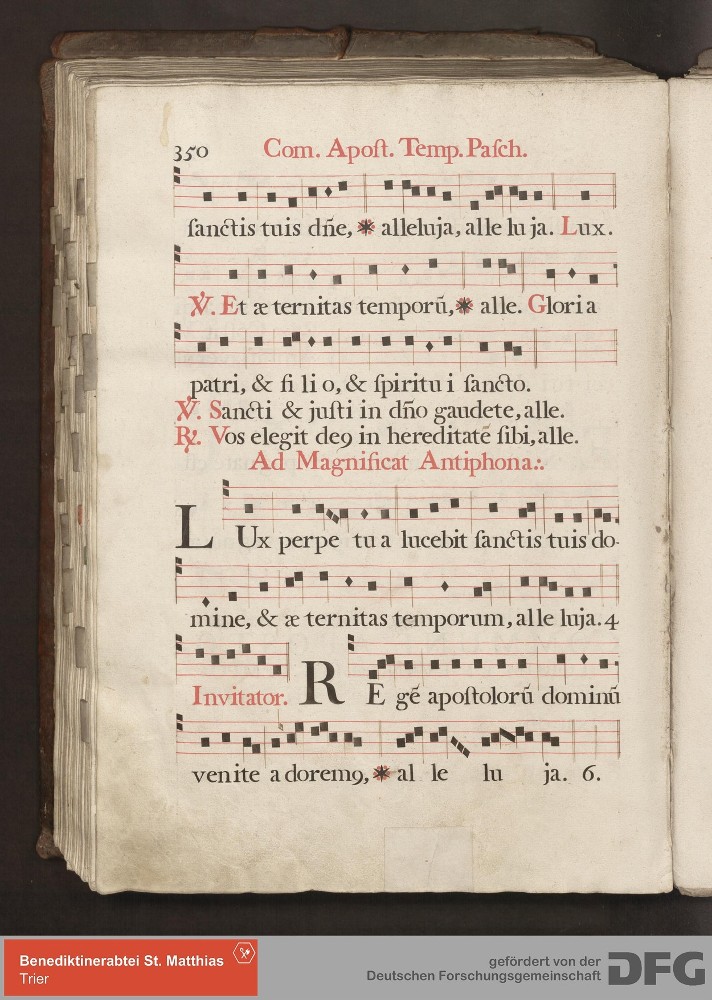 350 Com. Apoſt. Temp. Paſch.
ſanctis tuis dñe, ⁕ alleluja, alle lu ja. Lux.
℣. Et æ ternitas temporū, ⁕ alle. Glori a
patri, & fi li o, & ſpiritu i ſancto.
℣. Sancti & juſti in dño gaudete, alle.
℟. Vos elegit deꝰ in hereditatē ſibi, alle.
Ad Magnificat Antiphona:.
LUx perpe tu a lucebit ſanctis tuis do-
mine, & æ ternitas temporum, al le luja. 4
Invitator. REgē apoſtolorū dominū
venite a doremꝰ, ⁕ al le lu ja. 6.
Benediktinerabtei St. Matthias
Trier
gefördert von der
Deutschen Forschungsgemeinschaft DFG